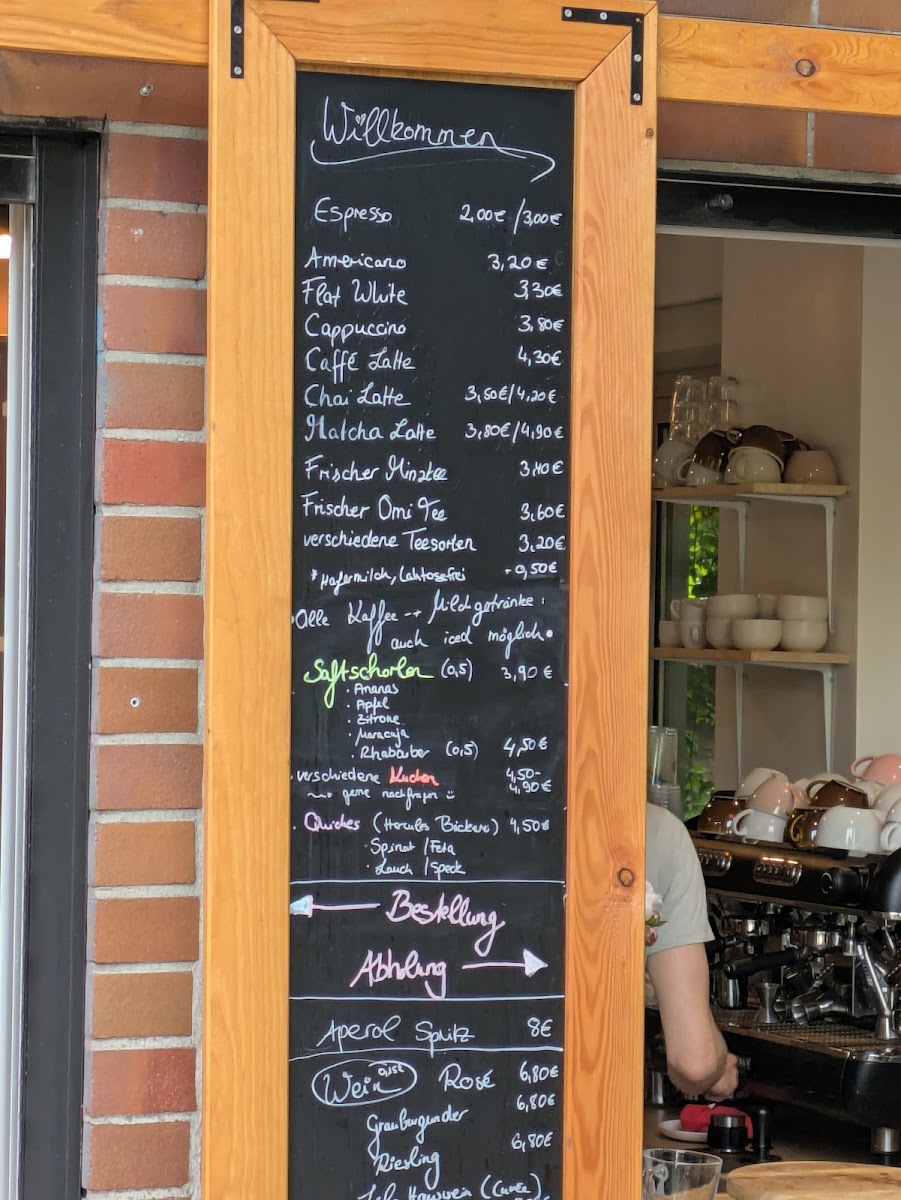 Willkommen
Espresso 2,00€ /3,00€
Americano 3,20€
Flat White 3,30€
Cappuccino 3,80€
Caffé Latte 4,30€
Chai Latte 3,50€/4,20€
Matcha Latte 3,80€/4,90€
Frischer Minztee 3,40€
Frischer Omi Tee 3,60€
verschiedene Teesorten 3,20€
*Hafermilch, Laktosefrei 0,50€
Alle Kaffee -+ Milchgetränke:
auch iced möglich
Saftschorlen (0,5) 3,90€
· Ananas
· Apfel
· Zitrone
· Maracuja
· Rhabarber (0,5) 4,50€
· verschiedene Kuchen 4,50-
gerne nachfragen 4,90€
· Quiches (Hercules Bäckerei) 4,50€
· Spinat / Feta
· Lauch / Speck
Bestellung
Abholung
Aperol Spritz 8€
Wein 0,15l Rosé 6,80€
Grauburgunder 6,80€
Riesling 6,80€